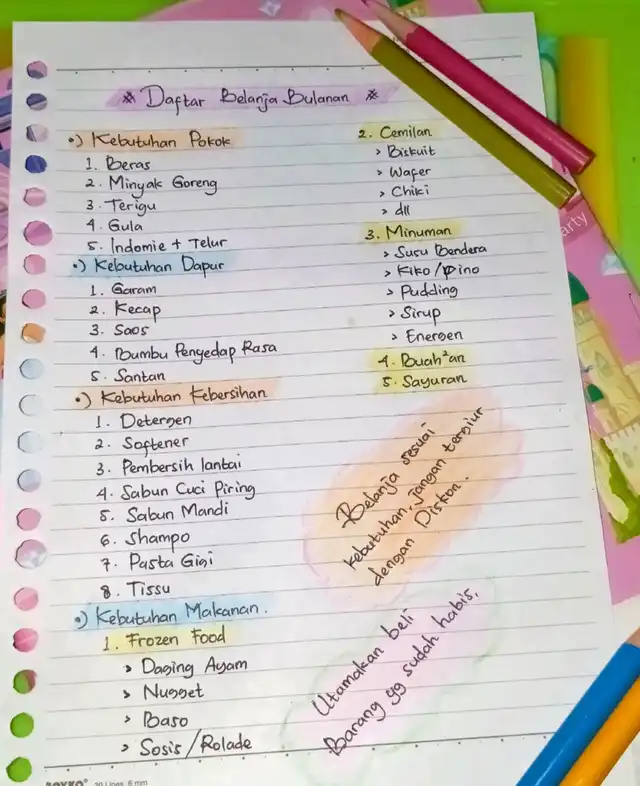 * Daftar Belanja Bulanan *
•) Kebutuhan Pokok
1. Beras
2. Minyak Goreng
3. Terigu
4. Gula
5. Indomie + Telur
•) Kebutuhan Dapur
1. Garam
2. Kecap
3. Saos
4. Bumbu Penyedap Rasa
5. Santan
•) Kebutuhan Kebersihan
1. Detergen
2. Softener
3. Pembersih lantai
4. Sabun Cuci Piring
5. Sabun Mandi
6. Shampo
7. Pasta Gigi
8. Tissu
•) Kebutuhan Makanan.
1. Frozen Food
> Daging Ayam
> Nugget
> Baso
> Sosis/Rolade
2. Cemilan
> Biskuit
> Wafer
> Chiki
> dll
3. Minuman
> Susu Bendera
> Kiko/Pino
> Pudding
> Sirup
> Energen
4. Buah²an
5. Sayuran
Belanja sesuai
kebutuhan, jangan tergiur
dengan Diskon.
Utamakan beli
Barang yg sudah habis,
30 Lines, 6 mm
arty